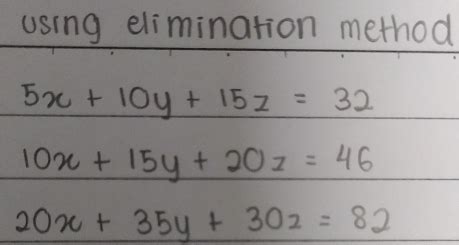 using elimination method
5x + 10y + 15z = 32
10x + 15y + 20z = 46
20x + 35y + 30z = 82